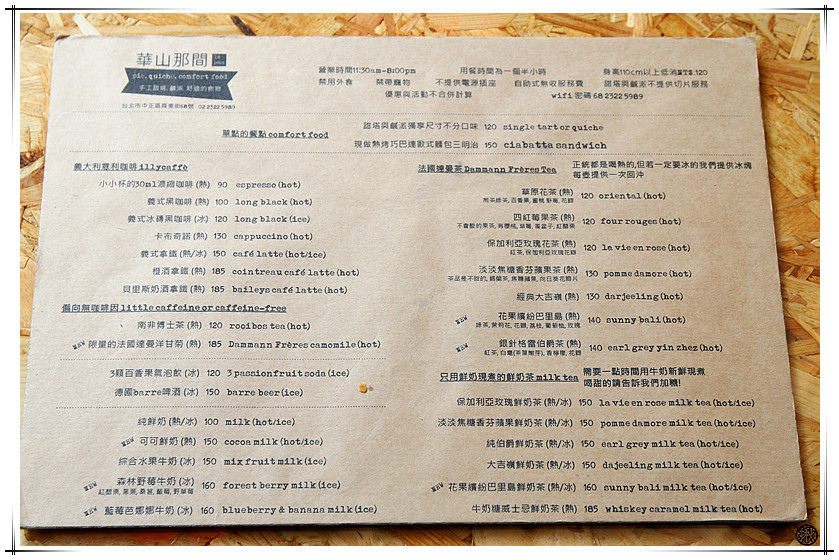 華山那間
pie, quiche, comfort food
手工甜塔, 鹹派, 舒適的食物
台北市中正區臨沂街68號 02 2322 5989
營業時間11:30am-8:00pm 用餐時間為一個半小時 身高110cm以上低消NT$.120
禁用外食 禁帶寵物 不提供電源插座 自助式無收服務費 甜塔與鹹派不提供切片服務
優惠與活動不合併計算 wifi 密碼 68 2322 5989
單點的餐點 comfort food
甜塔與鹹派獨享尺寸不分口味 120 single tart or quiche
現做熱烤巧巴達歐式麵包三明治 150 ciabatta sandwich
義大利意利咖啡 illy caffè
小小杯的30ml濃縮咖啡 (熱) 90 espresso (hot)
義式黑咖啡 (熱) 100 long black (hot)
義式冰磚黑咖啡 (冰) 120 long black (ice)
卡布奇諾 (熱) 130 cappuccino (hot)
義式拿鐵 (熱/冰) 150 café latte (hot/ice)
橙酒拿鐵 (熱) 185 cointreau café latte (hot)
貝里斯奶酒拿鐵 (熱) 185 baileys café latte (hot)
偏向無咖啡因 little caffeine or caffeine-free
南非博士茶 (熱) 120 rooibos tea (hot)
NEW 限量的法國達曼洋甘菊 (熱) 185 Dammann Frères camomile (hot)
3顆百香果氣泡飲 (冰) 120 3 passionfruit soda (ice)
德國barre啤酒 (冰) 150 barre beer (ice)
純鮮奶 (熱/冰) 100 milk (hot/ice)
NEW 可可鮮奶 (熱) 150 cocoa milk (hot/ice)
綜合水果牛奶 (冰) 150 mix fruit milk (ice)
NEW 森林野莓牛奶 (冰) 160 forest berry milk (ice)
紅醋栗, 黑栗, 桑葚, 藍莓, 野草莓
NEW 藍莓芭娜娜牛奶 (冰) 160 blueberry & banana milk (ice)
法國達曼茶 Dammann Frères Tea
正統都是喝熱的,但若一定要冰的我們提供冰塊
每壺提供一次回沖
草原花茶 (熱) 120 oriental (hot)
煎茶綠茶, 百香果, 蜜桃, 野莓, 花瓣
四紅莓果茶 (熱) 120 four rouges (hot)
不會酸的果茶, 有櫻桃, 草莓, 覆盆子, 紅醋栗
保加利亞玫瑰花茶 (熱) 120 la vie en rose (hot)
紅茶, 保加利亞玫瑰花瓣
淡淡焦糖香芬蘋果茶 (熱) 130 pomme damore (hot)
茶品是不甜的, 錫蘭茶, 焦糖蘋果, 向日葵花瓣片
經典大吉嶺 (熱) 130 darjeeling (hot)
NEW 花果繽紛巴里島 (熱) 140 sunny bali (hot)
綠茶, 茉莉花, 花瓣, 荔枝, 葡萄柚, 玫瑰
NEW 銀針格雷伯爵茶 (熱) 140 earl grey yin zhez (hot)
紅茶, 白毫(茶葉嫩芽), 香檸檬, 花瓣
只用鮮奶現煮的鮮奶茶 milk tea
需要一點時間用牛奶新鮮現煮
喝甜的請告訴我們加糖!
保加利亞玫瑰鮮奶茶 (熱/冰) 150 la vie en rose milk tea (hot/ice)
淡淡焦糖香芬蘋果鮮奶茶 (熱/冰) 150 pomme damore milk tea (hot/ice)
純伯爵鮮奶茶 (熱/冰) 150 earl grey milk tea (hot/ice)
大吉嶺鮮奶茶 (熱/冰) 150 dajeeling milk tea (hot/ice)
NEW 花果繽紛巴里島鮮奶茶 (熱/冰) 160 sunny bali milk tea (hot/ice)
牛奶糖威士忌鮮奶茶 (熱) 185 whiskey caramel milk tea (hot)